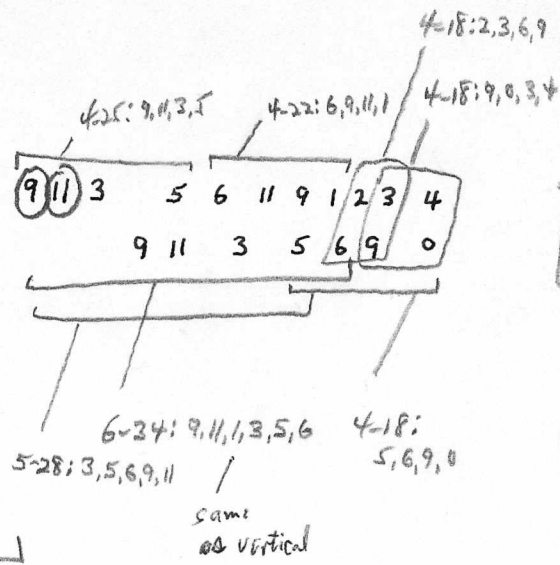 4-18: 2,3,6,9
4-25: 9,11,3,5 4-22: 6,9,11,1 4-18: 9,0,3,4
9 11 3 5 6 11 9 1 2 3 4
9 11 3 5 6 9 0
6-34: 9,11,1,3,5,6 4-18:
5-28: 3,5,6,9,11 5,6,9,0
same
as vertical